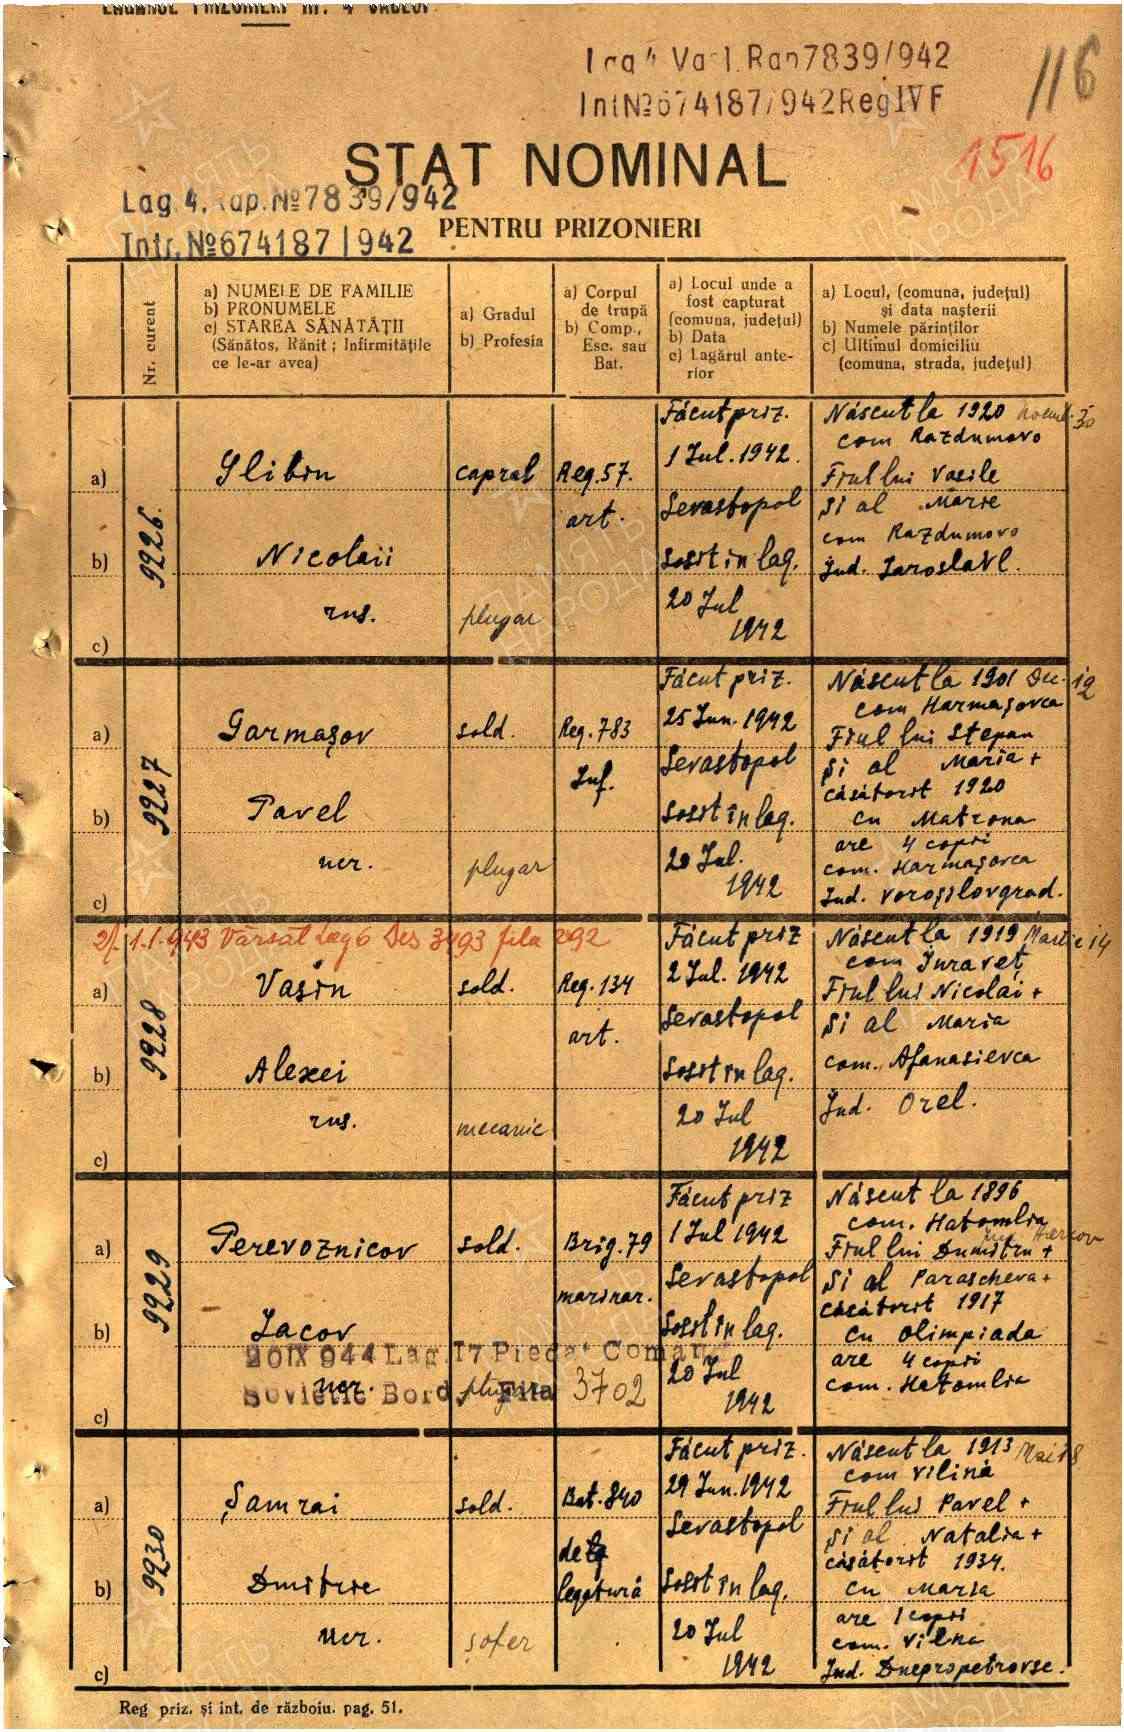 LAGĂRUL PRIZONIERI Nr. 4 VASLUI.
Lag 4 Vasl. Rap 7839/942
Int № 674187/942 Reg IV F
116
1516
STAT NOMINAL
Lag. 4. Rap. № 7839/942
PENTRU PRIZONIERI
Intr. № 674187/942
Nr. curent
a) NUMELE DE FAMILIE
b) PRONUMELE
c) STAREA SĂNĂTĂȚII
(Sănătos, Rănit ; Infirmitățile
ce le-ar avea)
a) Gradul
b) Profesia
a) Corpul
de trupă
b) Comp.,
Esc. sau
Bat.
a) Locul unde a
fost capturat
(comuna, județul)
b) Data
c) Lagărul ante-
rior
a) Locul, (comuna, județul)
și data nașterii
b) Numele părinților
c) Ultimul domiciliu
(comuna, strada, județul)
a)
b)
c)
9226.
Glibin
Nicolaii
rus.
capral
plugar
Reg. 57.
art.
Făcut priz.
1 Iul. 1942.
Sevastopol
Sosit în lag.
20 Iul
1942
Născut la 1920 Noemb. 30
com Razdumovo
Fiul lui Vasile
și al Marie
com Razdumovo
Jud. Iaroslavl.
a)
b)
c)
9227
Garmașov
Pavel
ucr.
sold.
plugar
Reg. 783
Inf.
Făcut priz.
25 Iun. 1942
Sevastopol
Sosit în lag.
20 Iul.
1942
Născut la 1901 Dec. 12
com Harmașovca
Fiul lui Stepan
și al Maria +
căsătorit 1920
cu Matrona
are 4 copii
com. Harmașovca
Jud. Voroșilovgrad.
2/. 1.1.943 Vărsat Lag 6 Des 3493 fila 292
a)
b)
c)
9228
Vașin
Alexei
rus.
sold.
mecanic
Reg. 134
art.
Făcut priz
2 Iul. 1942
Sevastopol
Sosit în lag.
20 Iul
1942
Născut la 1919 Martie 14
com Juraveț
Fiul lui Nicolai +
și al Maria
com. Afanasievca
Jud. Orel.
a)
b)
c)
9229
Perevoznicov
Iacov
ucr.
sold.
plugar
Brig. 79
marinar.
Făcut priz
1 Iul 1942
Sevastopol
Sosit în lag.
20 Iul
1942
Născut la 1896
com. Hatomlia
Jud. Harcov
Fiul lui Dumitru +
și al Parascheva +
căsătorit 1917
cu Olimpiada
are 4 copii
com. Hatomlia
20 IX 944 Lag. 17 Predat Comand
Sovietic Bord. Fila 3702
a)
b)
c)
9230
Șamrai
Dmitrie
ucr.
sold.
șofer
Bat. 840
de
legătură
Făcut priz.
29 Iun. 1942
Sevastopol
Sosit în lag.
20 Iul
1942
Născut la 1913 Mai 18
com Vilina
Fiul lui Pavel +
și al Natalia +
căsătorit 1934.
cu Maria
are 1 copii
com. Vilna
Jud. Dnepropetrovsc.
Reg priz. și int. de războiu. pag. 51.
ПАМЯТЬ
НАРОДА